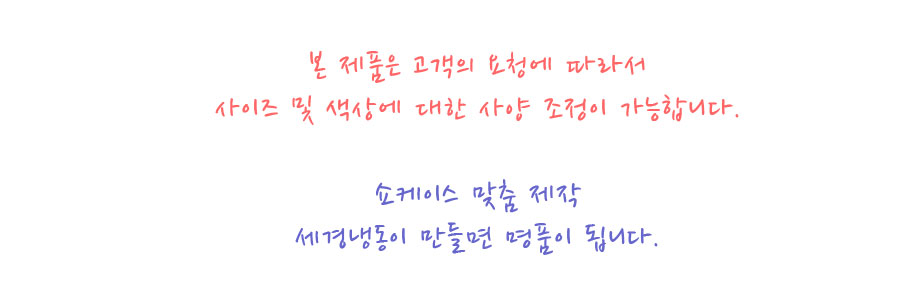 본 제품은 고객의 요청에 따라서
사이즈 및 색상에 대한 사양 조정이 가능합니다.
쇼케이스 맞춤 제작
세경냉동이 만들면 명품이 됩니다.